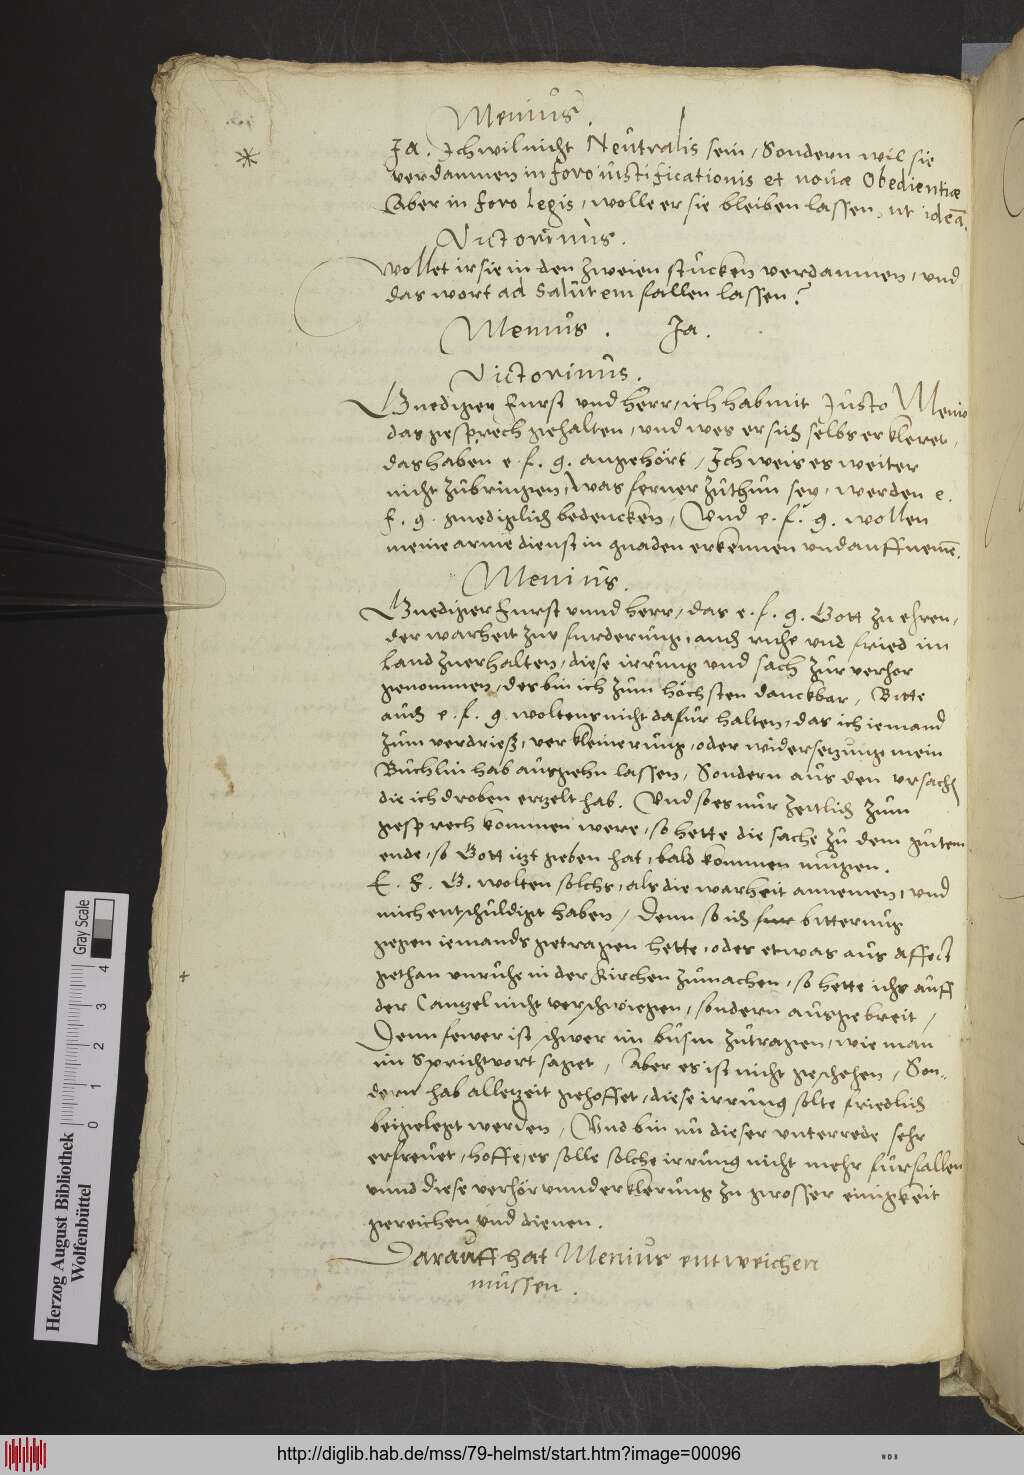 Menius.
Ja. Ich wil nicht Neutralis sein, Sondern wil sie
verdammen in foro iustificationis et nouæ Obedientiæ
Aber in foro legis, wolle er sie bleiben lassen, ut ideā.
Victorinus.
Wollet ir sie in den zweien stucken verdammen, und
das wort ad salutem fallen lassen?
Menius. Ja.
Victorinus.
Gnediger Furst und Herr, ich hab mit Justo Menio
das gesprech gehalten, und wes er sich selbs erkleret,
das haben e. f. g. angehört, Ich weis es weiter
nicht zubringen, was ferner zuthun sey, werden e.
f. g. gnediglich bedencken, Und e. f. g. wollen
meine arme dienst in gnaden erkennen und auffnemē.
Menius.
Gnediger Furst unnd Herr, das e. f. g. Gott zu ehren,
der warheit zur furderung, auch ruhe und fried im
Land zuerhalten, diese irrung und sach zur verhor
genommen, des bin ich zum höchsten danckbar, Bitte
auch e. f. g. woltens nicht dafur halten, das ich iemand
zum verdrieß, verkleinerung, oder widersetzung mein
Buchlin hab ausgehn lassen, Sondern aus den ursachen
die ich droben erzelt hab. Und so es nur zeitlich zum
gesprech kommen were, so hette die sache zu dem gutem
ende, so Gott itzt geben hat, bald kommen mugen.
E. F. G. wolten solchs, als die warheit annemen, und
mich entschuldigt haben, Denn so ich fur bitterung
gegen iemands getragen hette, odes etwas aus affect
gethan unruhe in der Kirchen zumachen, so hette ichs auff
der Cantzel nicht verschwiegen, sondern ausgebreit,
Denn fewer ist schwer im busm zutragen, wie man
im Sprichwort saget, Aber es ist nicht geschehen, Son-
dern hab alletzeit gehoffet, diese irrung solte friedlich
beigelegt werden, Und bin nu dieser unterrede sehr
erfreuet, hoffe, es solle solche irrung nicht mehr furfallen
unnd diese verhör unnd erklerung zu grosser einigkeit
gereichen und dienen.
Darauff hat Menius entweichen
müssen.
Gray Scale
0 1 2 3 4
Herzog August Bibliothek
Wolfenbüttel
http://diglib.hab.de/mss/79-helmst/start.htm?image=00096
WDB